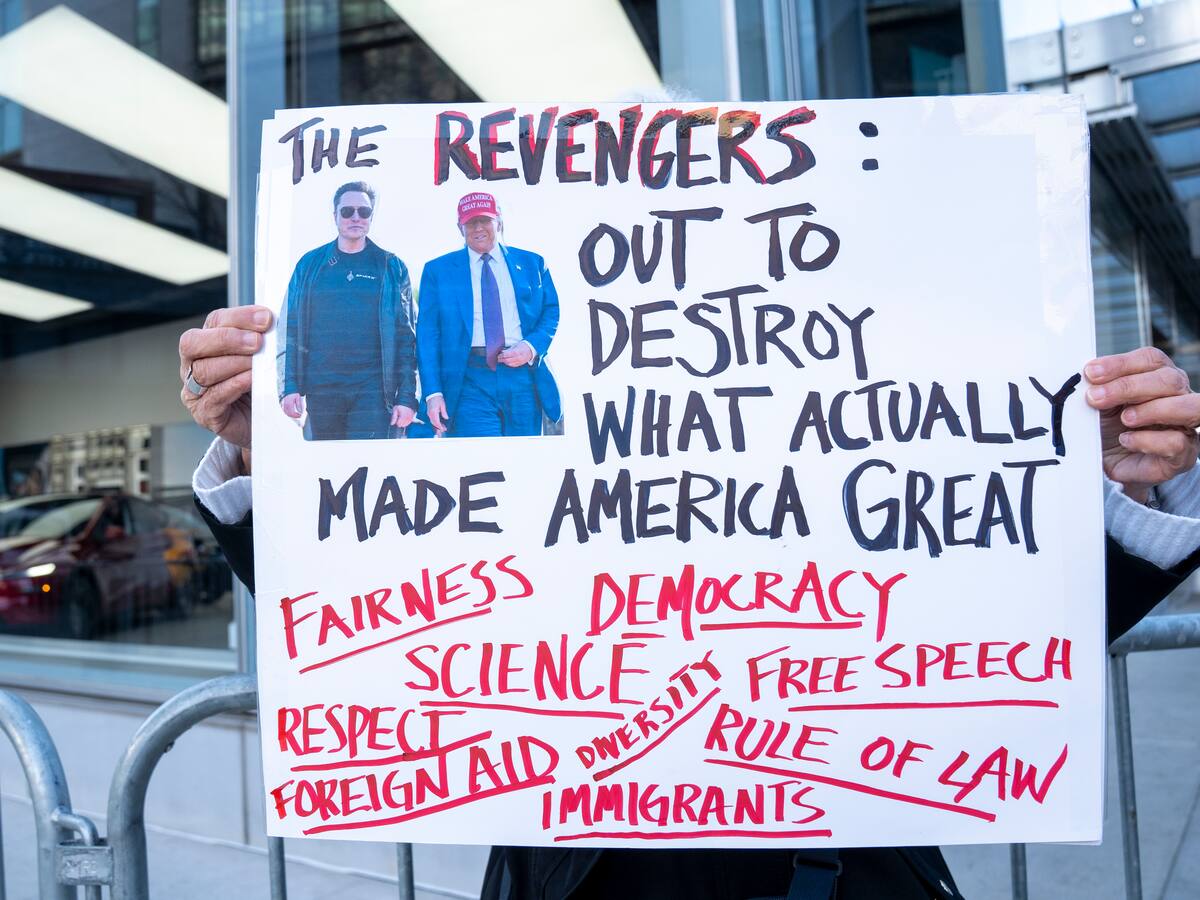 THE REVENGERS:
MAKE AMERICA
GREAT AGAIN
SPACEX
OUT TO
DESTROY
WHAT ACTUALLY
MADE AMERICA GREAT
FAIRNESS
DEMOCRACY
SCIENCE
DIVERSITY
FREE SPEECH
RESPECT
RULE OF LAW
FOREIGN AID
IMMIGRANTS